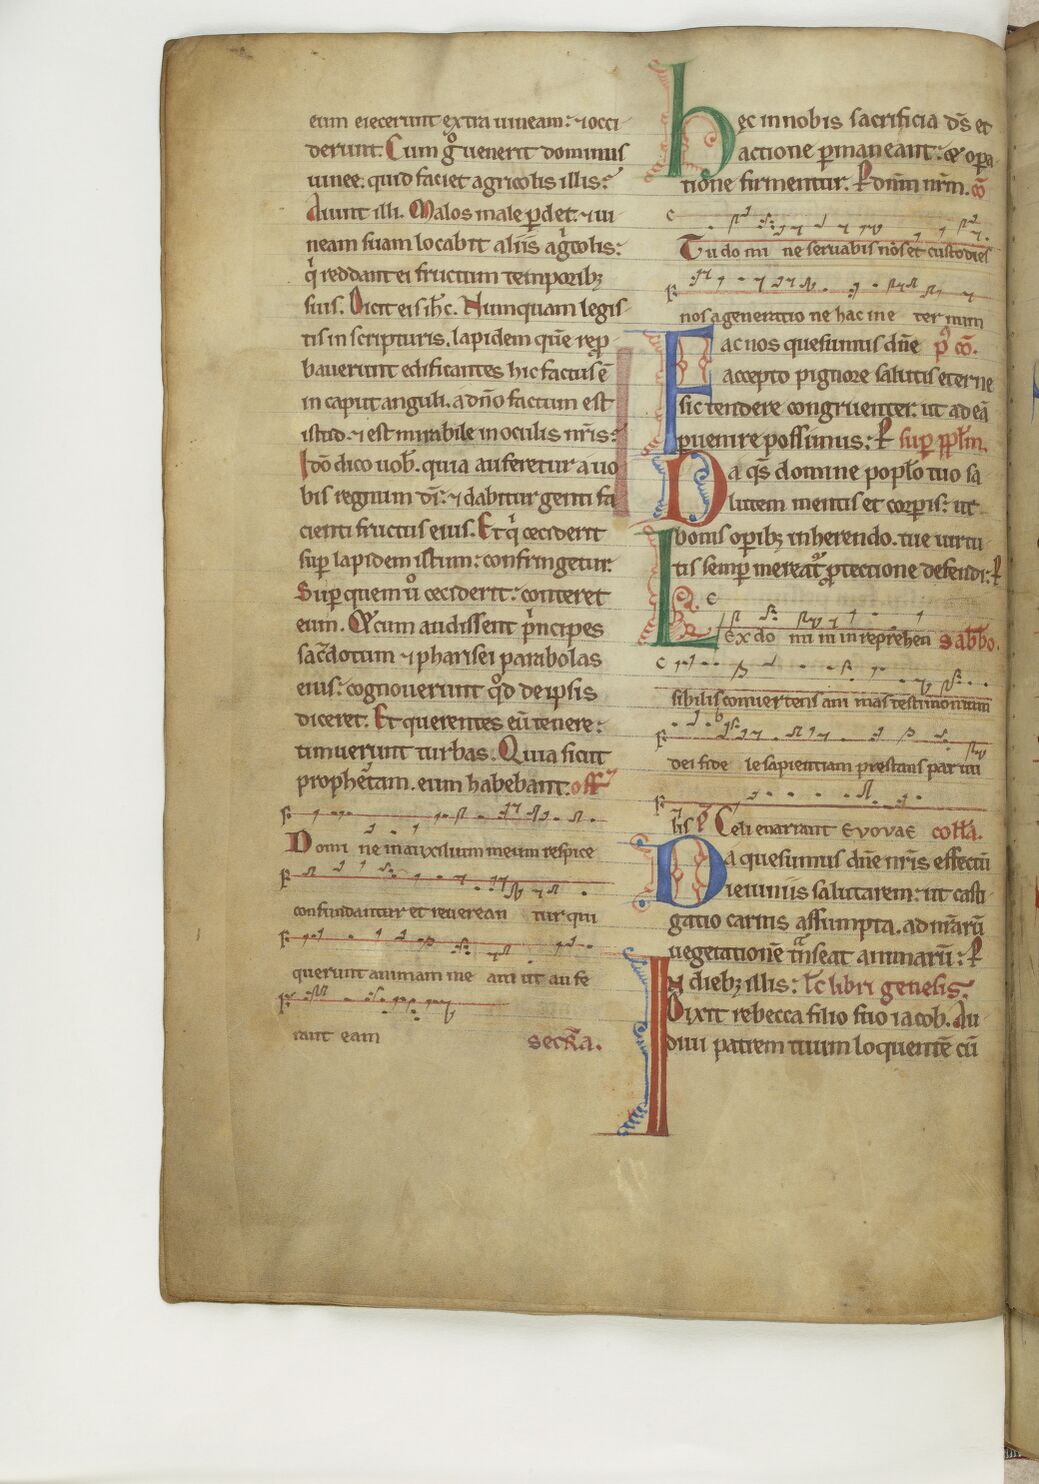 eum eiecerunt extra uineam: ⁊ occi
derunt. Cum gͦ uenerit dominus
uinee. quid faciet agricolis illis?
Aiunt illi. Malos male ꝑdet. ⁊ ui
neam suam locabit aliis ag̍colis:
q̍ reddant ei fructum temporibꝫ
suis. Dicit eis ih̅c. Numquam legis
tis in scripturis. lapidem quē rep̱ro
bauerunt edificantes hic factus ē
in caput anguli. a dn̄o factum est
istud. ⁊ est mirabile in oculis nr̄is?
Idō dico uob̅. quia auferetur a uo
bis regnum dī. ⁊ dabitur genti fa
cienti fructus eius. Et q̍ ceciderit
suꝑ lapidem istum: confringetur.
Suꝑ quem u̅o ceciderit: conteret
eum. Et cum audissent p̍ncipes
sac̄dotum ⁊ pharisei parabolas
eius: cognouerunt qd̄ de ipsis
diceret. Et querentes eū tenere:
timuerunt turbas. Quia sicut
prophetam. eum habebant. off
Domi ne in auxilium meum respice
confundantur et reuerean tur qui
querunt animam me am ut aufe
rant eam secr̄a.
hęc in nobis sacrificia dn̄s et
actione ꝑmaneant: ⁊ oꝑa
tione firmentur. Ꝑ dn̄m nr̄m. cō
Tu domi ne seruabis nos et custodies
nos a generatio ne hac in e ternum
Fac nos quesumus dn̄e pͦ cō.
accepto pignore salutis eterne
sic tendere congruenter. ut ad eā
ꝑuenire possimus: Ꝑ suꝑ ppl̄m.
Da qs̄ domine poplo̅ tuo sa
lutem mentis et corꝑis: ut
bonis oꝑibꝫ inherendo. tue uirtu
tis semꝑ mereat᷑ ꝓtectione defendi: Ꝑ
Lex do mi ni in reprehen sabb̄o.
sibilis conuertens ani mas testimonium
dei fide le sapientiam prestans par uu
lis p̄ Celi enarrant EVOVAE coll̄a.
Da quesumus dn̄e nr̄is effectū
ieiuniis salutarem: ut casti
gatio carnis assumpta. ad nr̄arū
uegetationē t̄nseat animarū: Ꝑ
In diebꝫ illis: Lc̄ libri genesis.
Dixit rebecca filio suo iacob. Au
diui patrem tuum loquentē cū